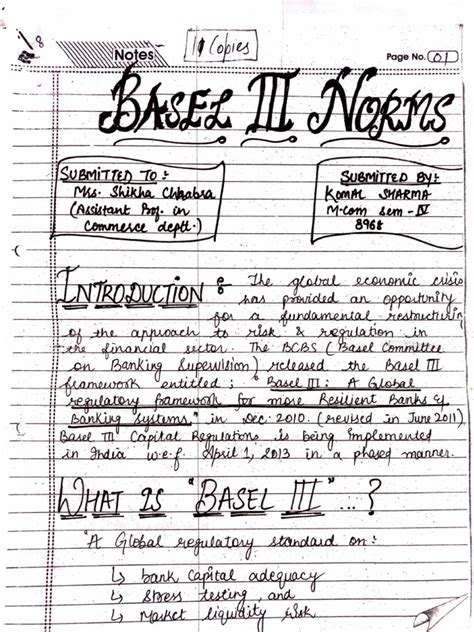 8
Notes
11 Copies
Page No. 01
BASEL III NORMS
SUBMITTED TO :-
Mrs. Shikha Chhabra
(Assistant Prof. in
Commerce deptt.)
SUBMITTED BY:-
KOMAL SHARMA
M.com sem - IV
8968
INTRODUCTION : The global economic crisis
has provided an opportunity
for a fundamental restructurin
of the approach to risk & regulation in
the financial sector. The BCBS (Basel Committee
on Banking Supervision) released the Basel III
framework entitled : "Basel III : A Global
regulatory framework for more Resilient Banks &
Banking Systems" in Dec. 2010. (revised in June 2011)
Basel III Capital Regulations is being implemented
in India w.e.f. April 1, 2013 in a phased manner.
WHAT IS "BASEL III"...?
"A Global regulatory standard on :
↳ bank Capital adequacy
↳ Stress testing, and
↳ Market liquidity risk